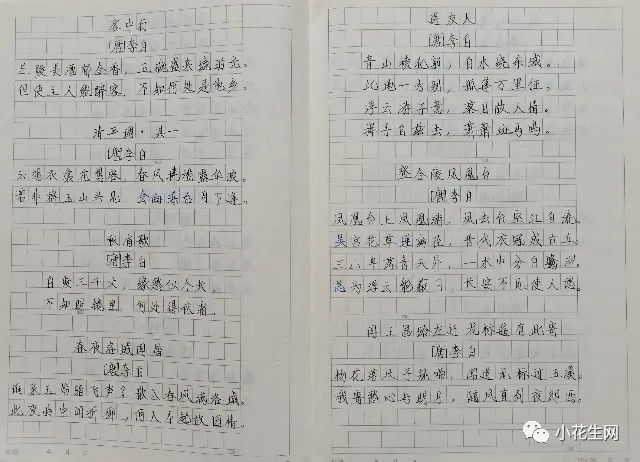 客中行
[唐]李白
兰陵美酒郁金香，玉碗盛来琥珀光。
但使主人能醉客，不知何处是他乡。
清平调·其一
[唐]李白
云想衣裳花想容，春风拂槛露华浓。
若非群玉山头见，会向瑶台月下逢。
秋浦歌
[唐]李白
白发三千丈，缘愁似个长。
不知明镜里，何处得秋霜。
春夜洛城闻笛
[唐]李白
谁家玉笛暗飞声？散入春风满洛城。
此夜曲中闻折柳，何人不起故园情。
送友人
[唐]李白
青山横北郭，白水绕东城。
此地一为别，孤蓬万里征。
浮云游子意，落日故人情。
挥手自兹去，萧萧班马鸣。
登金陵凤凰台
[唐]李白
凤凰台上凤凰游，凤去台空江自流。
吴宫花草埋幽径，晋代衣冠成古丘。
三山半落青天外，一水中分白鹭洲。
总为浮云能蔽日，长安不见使人愁。
闻王昌龄左迁龙标遥有此寄
[唐]李白
杨花落尽子规啼，闻道龙标过五溪。
我寄愁心与明月，随风直到夜郎西。
小花生网